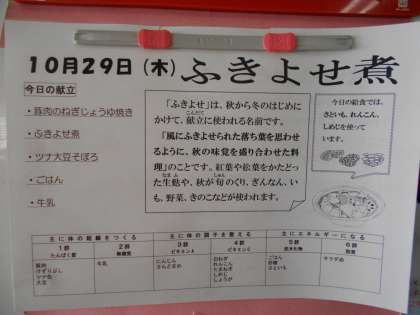 10月29日(木)ふきよせ煮
今日の献立
・豚肉のねぎじょうゆ焼き
・ふきよせ煮
・ツナ大豆そぼろ
・ごはん
・牛乳
「ふきよせ」は、秋から冬のはじめに
かけて、献立に使われる名前です。
こんだて
「風にふきよせられた落ち葉を思わせ
るように、秋の味覚を盛り合わせた料
理」のことです。紅葉や松葉をかたどっ
た生麩や、秋が旬のくり、ぎんなん、い
なまふ
しゅん
も、野菜、きのこなどが使われます。
今日の給食では、
さといも、れんこん、
しめじを使って
います。
主に体の組織をつくる
主に体の調子を整える
主にエネルギーになる
1群
2群
3群
4群
5群
6群
たんぱく質
無機質
ビタミンA
ビタミンC
炭水化物
脂質
豚肉
けずりぶし
ツナ缶
大豆
牛乳
にんじん
さんどまめ
白ねぎ
れんこん
たまねぎ
しめじ
しょうが
ごはん
砂糖
さといも
サラダ油